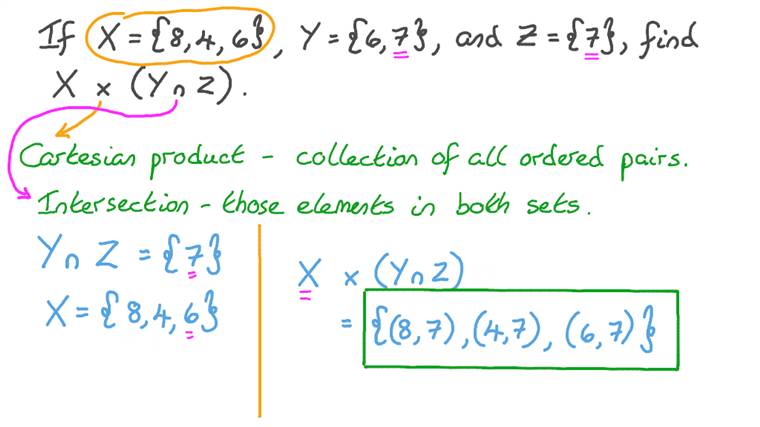 If X = {8, 4, 6}, Y = {6, 7}, and Z = {7}, find
X × (Y ∩ Z).
Cartesian product - collection of all ordered pairs.
Intersection - those elements in both sets.
Y ∩ Z = {7}
X = {8, 4, 6}
X × (Y ∩ Z)
= {(8, 7), (4, 7), (6, 7)}